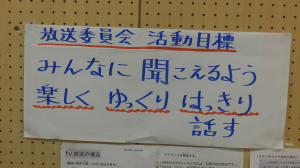 放送委員会 活動目標
みんなに 聞こえるよう
楽しく ゆっくり はっきり
話す
TV放送の場合